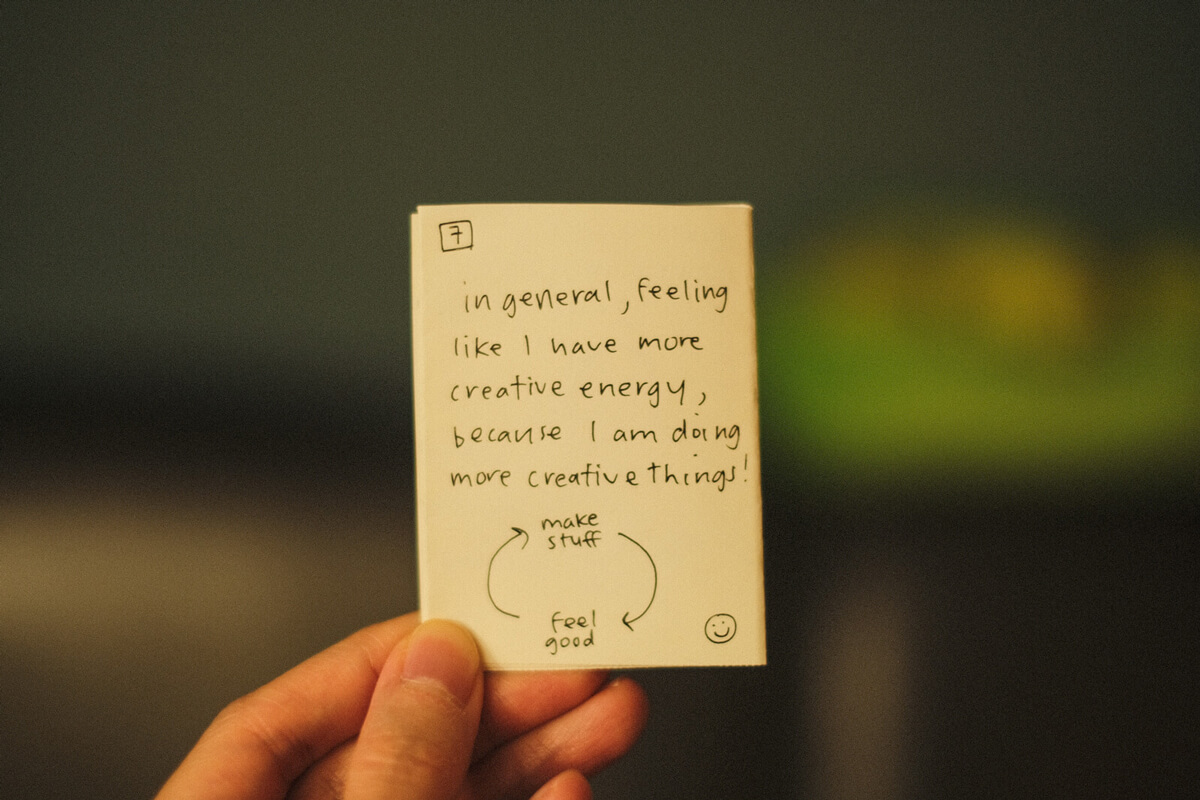 7
in general, feeling
like I have more
creative energy,
because I am doing
more creative things!
make
stuff
feel
good